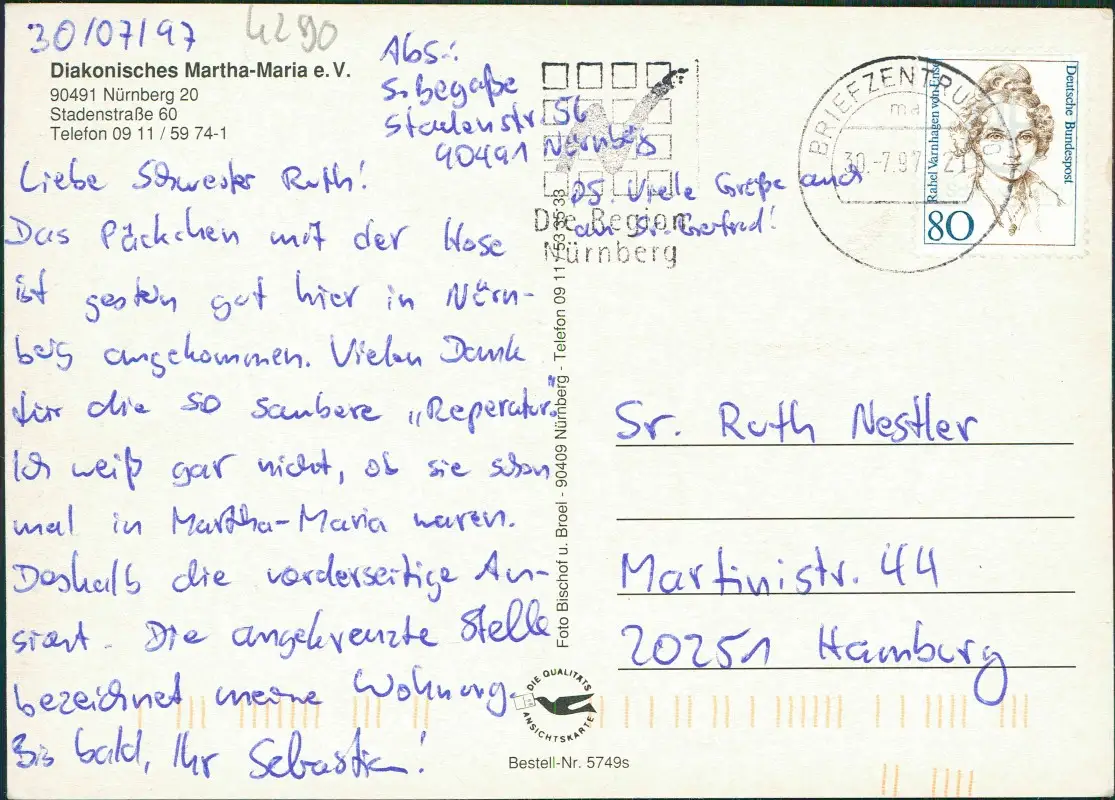 30/07/97
4290
Diakonisches Martha-Maria e. V.
90491 Nürnberg 20
Stadenstraße 60
Telefon 09 11 / 59 74-1
Abs.:
S. Begaße
Stadenstr. 56
90491 Nürnberg
Liebe Schwester Ruth!
Das Päckchen mit der Hose
ist gestern gut hier in Nürn-
berg angekommen. Vielen Dank
für die so saubere „Reperatur."
Ich weiß gar nicht, ob sie schon
mal in Martha-Maria waren.
Deshalb die vorderseitige An-
sicht. Die angekreuzte Stelle
bezeichnet meine Wohnung.
Bis bald, Ihr Sebastian!
PS. Viele Grüße auch
an Sr. Gertrud!
Die Region
Nürnberg
BRIEFZENTRUM
30.-7.97
Deutsche Bundespost
Rahel Varnhagen von Ense
80
Foto Bischof u. Broel - 90409 Nürnberg - Telefon 09 11 / 53 35 33
Sr. Ruth Nestler
Martinistr. 44
20251 Hamburg
DIE QUALITÄTS
ANSICHTSKARTE
Bestell-Nr. 5749s